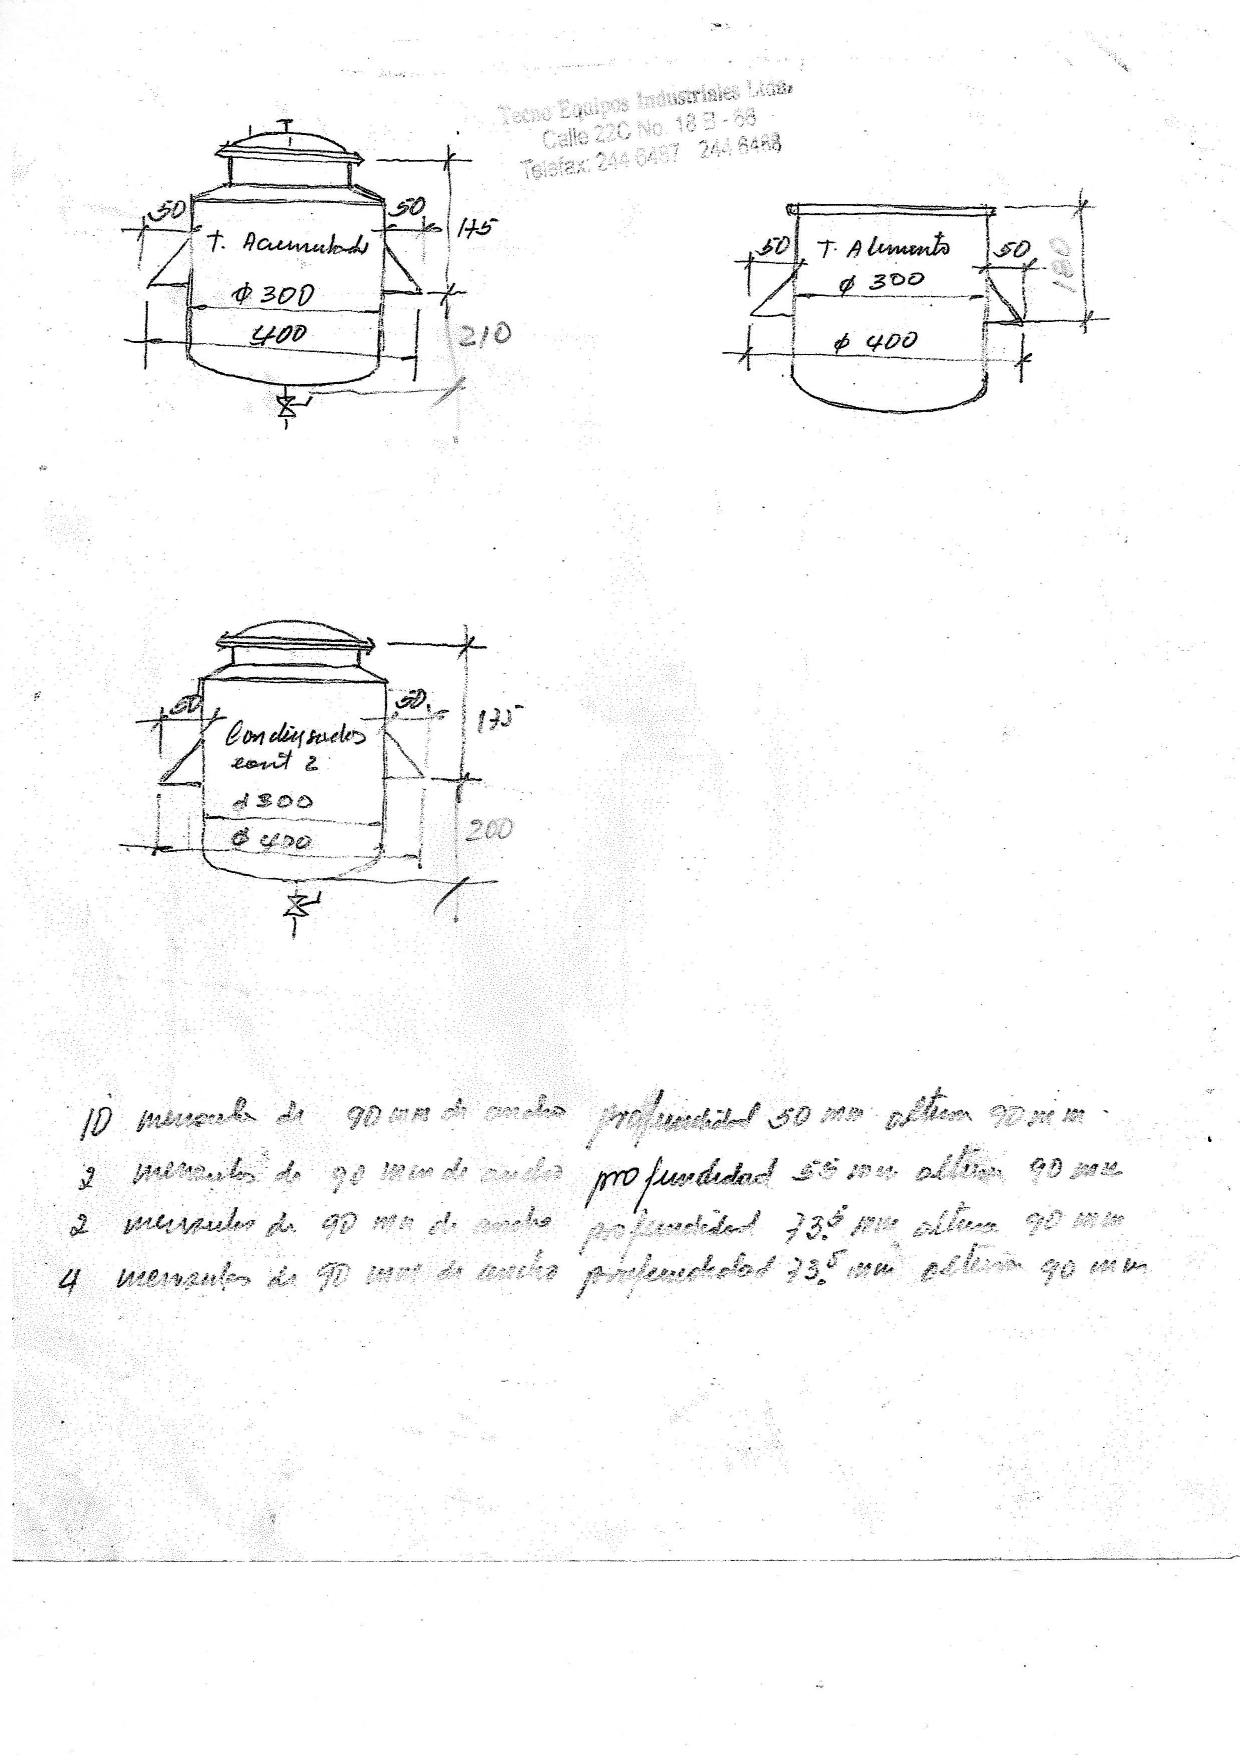 Tecno Equipos Industriales Ltda.
Calle 22C No. 18 B - 66
Telefax: 244 6487 244 6488
50
50
175
T. Acumulado
ϕ 300
400
210
50
T. Alimento
50
180
ϕ 300
ϕ 400
50
50
175
Condensados
cant 2
ϕ 300
ϕ 400
200
10 mensulas de 90 mm de ancho profundidad 50 mm altura 90 mm
2 mensulas de 90 mm de ancho profundidad mm altura 90 mm
2 mensulas de 90 mm de ancho profundidad 73.5 mm altura 90 mm
4 mensulas de 90 mm de ancho profundidad 73.5 mm altura 90 mm